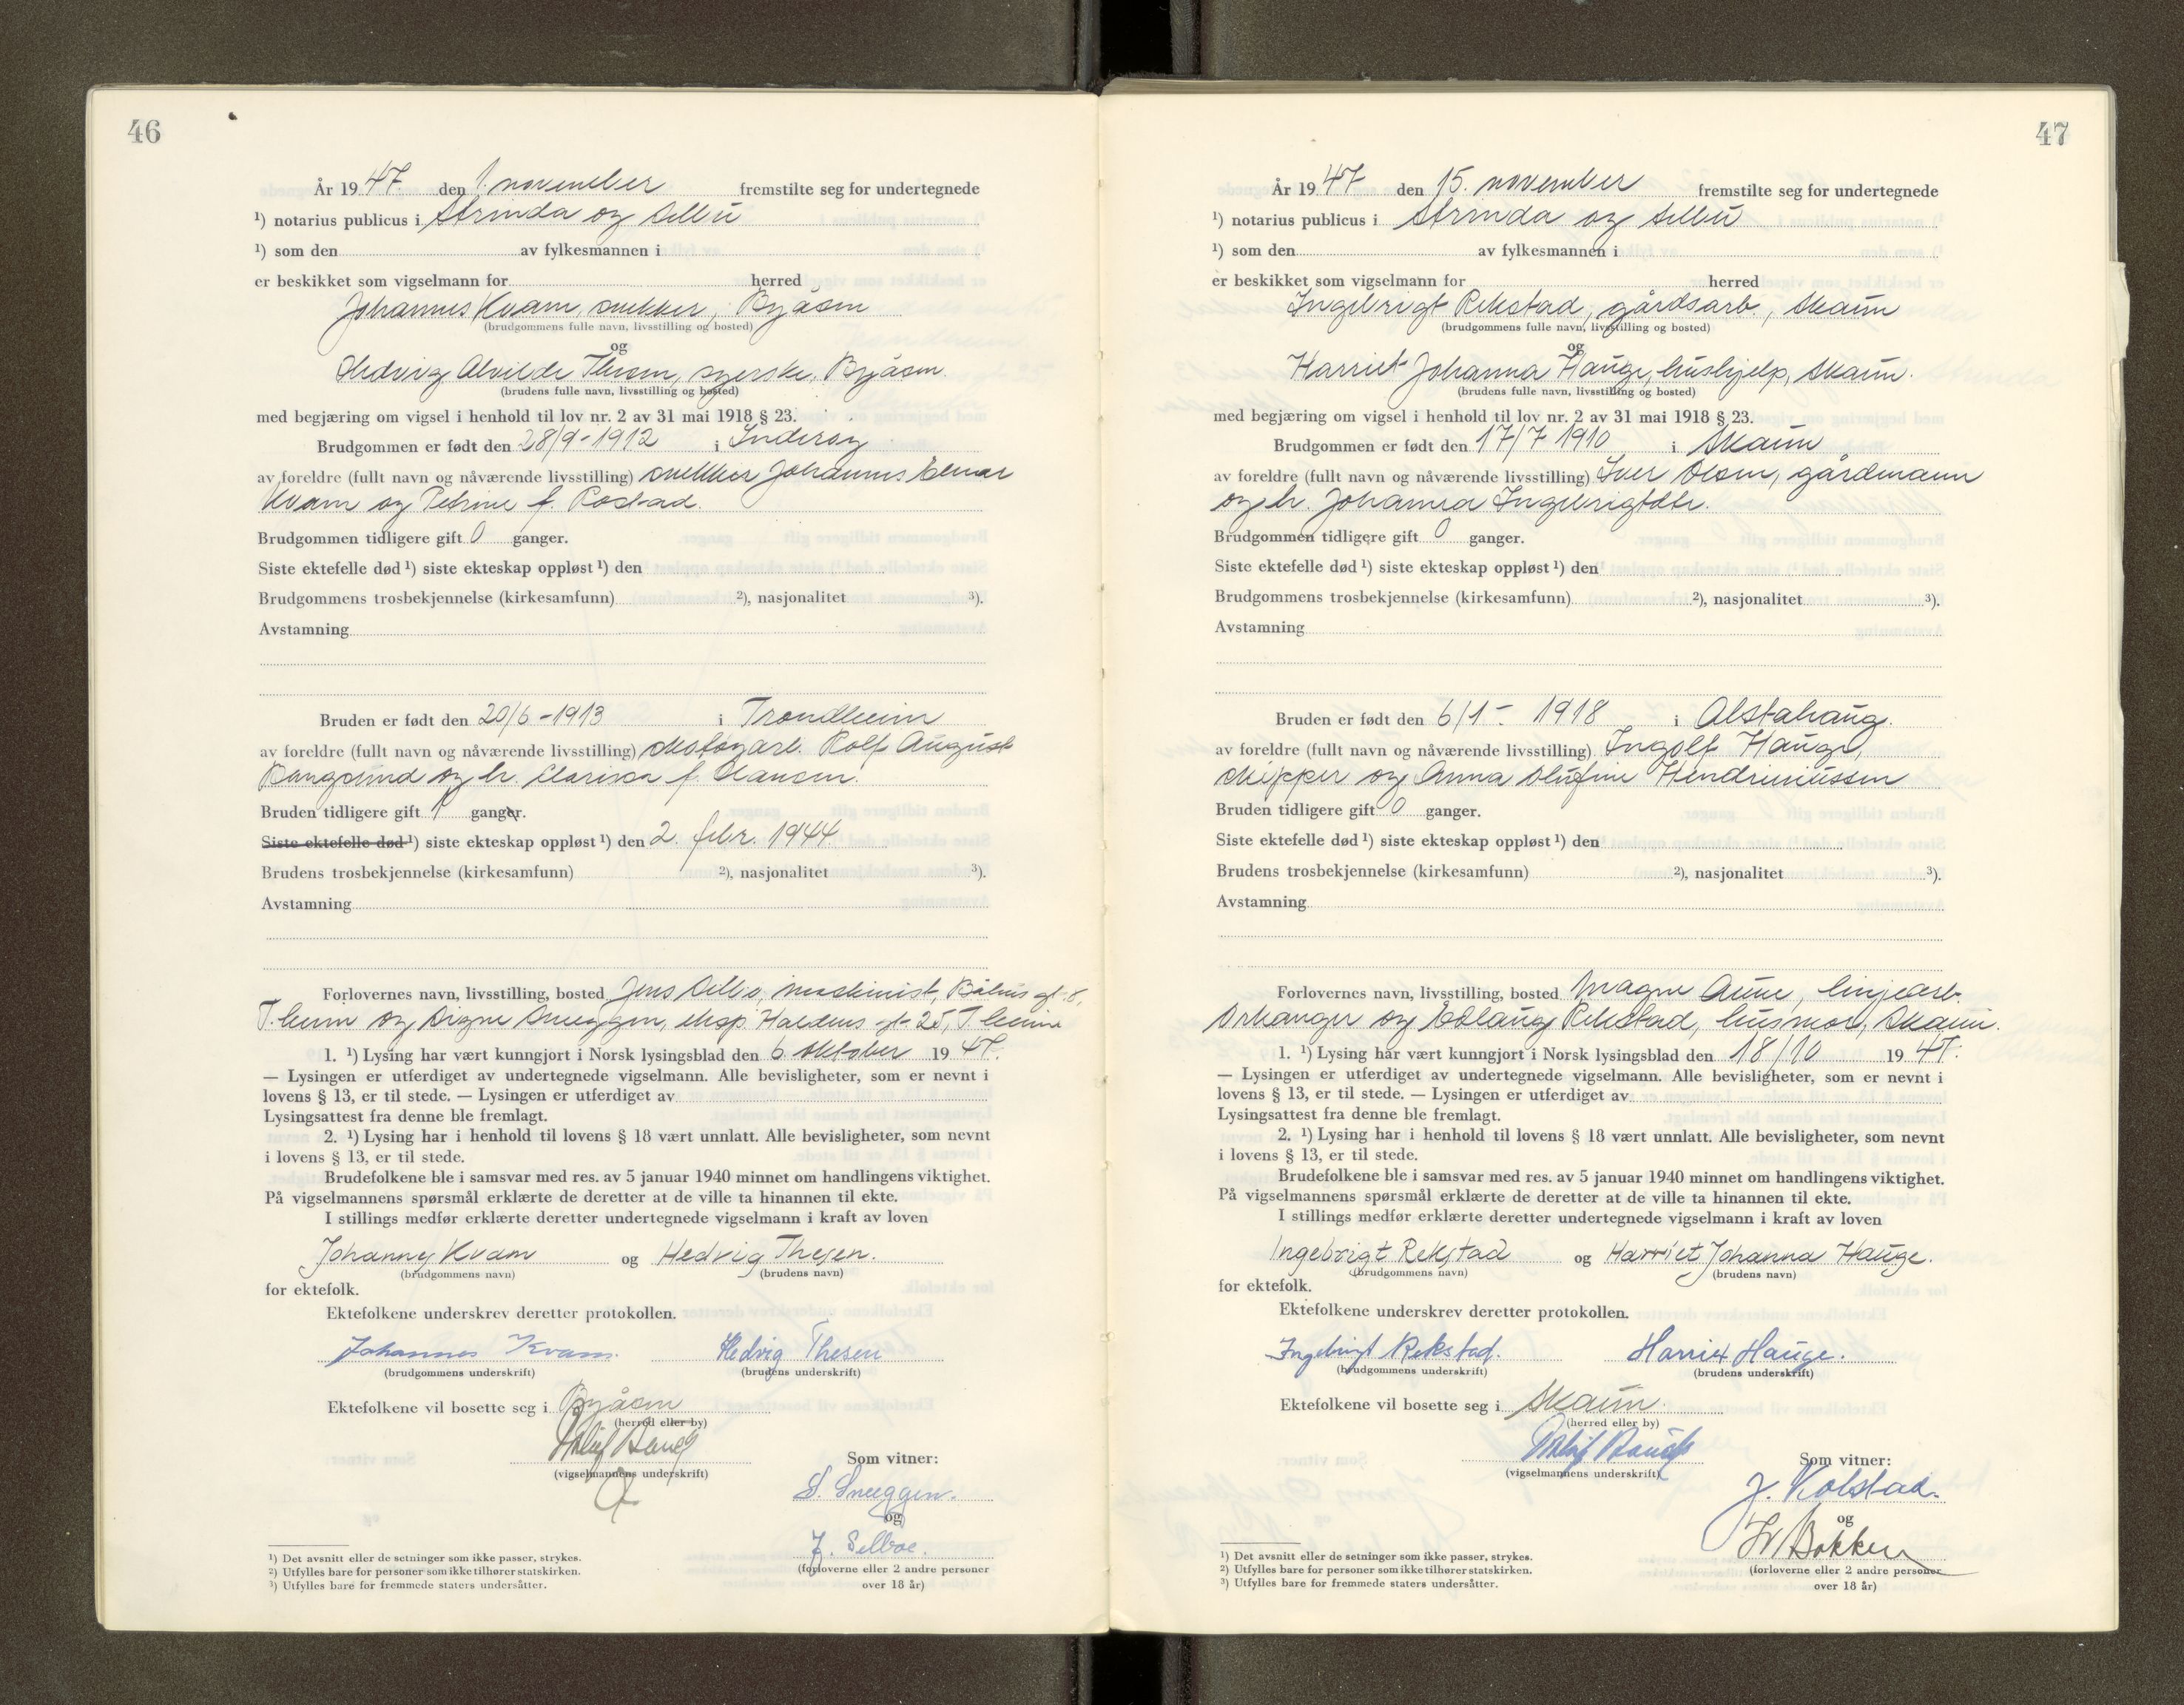 46
År 1947 den 1. november fremstilte seg for undertegnede
¹) notarius publicus i Strinda og Selbu
¹) som den av fylkesmannen i
er beskikket som vigselmann for herred
Johannes Kvam, snekker, Byåsen
(brudgommens fulle navn, livsstilling og bosted)
og
Hedvig Alvilde Thesen, syerske, Byåsen.
(brudens fulle navn, livsstilling og bosted)
med begjæring om vigsel i henhold til lov nr. 2 av 31 mai 1918 § 23.
Brudgommen er født den 28/9-1912 i Inderøy
av foreldre (fullt navn og nåværende livsstilling) snekker Johannes Elenar
Kvam og Petrine f. Rostad.
Brudgommen tidligere gift 0 ganger.
Siste ektefelle død ¹) siste ekteskap oppløst ¹) den
Brudgommens trosbekjennelse (kirkesamfunn) ²), nasjonalitet ³).
Avstamning
Bruden er født den 20/6-1913 i Trondheim
av foreldre (fullt navn og nåværende livsstilling) skotøyarb. Rolf August
Bangsund og h. Clarissa f. Hansen.
Bruden tidligere gift 1 ganger.
Siste ektefelle død ¹) siste ekteskap oppløst ¹) den 2. febr. 1944
Brudens trosbekjennelse (kirkesamfunn) ²), nasjonalitet ³).
Avstamning
Forlovernes navn, livsstilling, bosted Jens Selbo, maskinist, Båhus gt. 8,
T.heim og Signe Sneggen, eksp. Haldens gt. 25, T.heim
1. ¹) Lysing har vært kunngjort i Norsk lysingsblad den 6. oktober 1947.
— Lysingen er utferdiget av undertegnede vigselmann. Alle bevisligheter, som er nevnt i
lovens § 13, er til stede. — Lysingen er utferdiget av
Lysingsattest fra denne ble fremlagt.
2. ¹) Lysing har i henhold til lovens § 18 vært unnlatt. Alle bevisligheter, som nevnt
i lovens § 13, er til stede.
Brudefolkene ble i samsvar med res. av 5 januar 1940 minnet om handlingens viktighet.
På vigselmannens spørsmål erklærte de deretter at de ville ta hinannen til ekte.
I stillings medfør erklærte deretter undertegnede vigselmann i kraft av loven
Johannes Kvam og Hedvig Thesen.
(brudgommens navn) (brudens navn)
for ektefolk.
Ektefolkene underskrev deretter protokollen.
Johannes Kvam. Hedvig Thesen
(brudgommens underskrift) (brudens underskrift)
Ektefolkene vil bosette seg i Byåsen
(herred eller by)
(vigselmannens underskrift)
Som vitner:
S. Sneggen.
og
J. Selboe.
(forloverne eller 2 andre personer
over 18 år)
¹) Det avsnitt eller de setninger som ikke passer, strykes.
²) Utfylles bare for personer som ikke tilhører statskirken.
³) Utfylles bare for fremmede staters undersåtter.
47
År 1947 den 15. november fremstilte seg for undertegnede
¹) notarius publicus i Strinda og Selbu
¹) som den av fylkesmannen i
er beskikket som vigselmann for herred
Ingebrigt Rekstad, gårdsarb., Skaun
(brudgommens fulle navn, livsstilling og bosted)
og
Harriet Johanna Hauge, hushjelp, Skaun.
(brudens fulle navn, livsstilling og bosted)
med begjæring om vigsel i henhold til lov nr. 2 av 31 mai 1918 § 23.
Brudgommen er født den 17/7 1910 i Skaun
av foreldre (fullt navn og nåværende livsstilling) Iver Olsen, gårdmann
og h. Johanna Ingebrigtdtr.
Brudgommen tidligere gift 0 ganger.
Siste ektefelle død ¹) siste ekteskap oppløst ¹) den
Brudgommens trosbekjennelse (kirkesamfunn) ²), nasjonalitet ³).
Avstamning
Bruden er født den 6/1- 1918 i Alstahaug.
av foreldre (fullt navn og nåværende livsstilling) Ingolf Hauge,
skipper og Anna Olufine Hendriniussen
Bruden tidligere gift 0 ganger.
Siste ektefelle død ¹) siste ekteskap oppløst ¹) den
Brudens trosbekjennelse (kirkesamfunn) ²), nasjonalitet ³).
Avstamning
Forlovernes navn, livsstilling, bosted Magne Aune, linjearb.
Orkanger og Eblaug Rekstad, husmor, Skaun.
1. ¹) Lysing har vært kunngjort i Norsk lysingsblad den 18/10 1947.
— Lysingen er utferdiget av undertegnede vigselmann. Alle bevisligheter, som er nevnt i
lovens § 13, er til stede. — Lysingen er utferdiget av
Lysingsattest fra denne ble fremlagt.
2. ¹) Lysing har i henhold til lovens § 18 vært unnlatt. Alle bevisligheter, som nevnt
i lovens § 13, er til stede.
Brudefolkene ble i samsvar med res. av 5 januar 1940 minnet om handlingens viktighet.
På vigselmannens spørsmål erklærte de deretter at de ville ta hinannen til ekte.
I stillings medfør erklærte deretter undertegnede vigselmann i kraft av loven
Ingebrigt Rekstad og Harriet Johanna Hauge.
(brudgommens navn) (brudens navn)
for ektefolk.
Ektefolkene underskrev deretter protokollen.
Ingebrigt Rekstad. Harriet Hauge.
(brudgommens underskrift) (brudens underskrift)
Ektefolkene vil bosette seg i Skaun.
(herred eller by)
(vigselmannens underskrift)
Som vitner:
J. Kolstad.
og
Bakken
(forloverne eller 2 andre personer
over 18 år)
¹) Det avsnitt eller de setninger som ikke passer, strykes.
²) Utfylles bare for personer som ikke tilhører statskirken.
³) Utfylles bare for fremmede staters undersåtter.